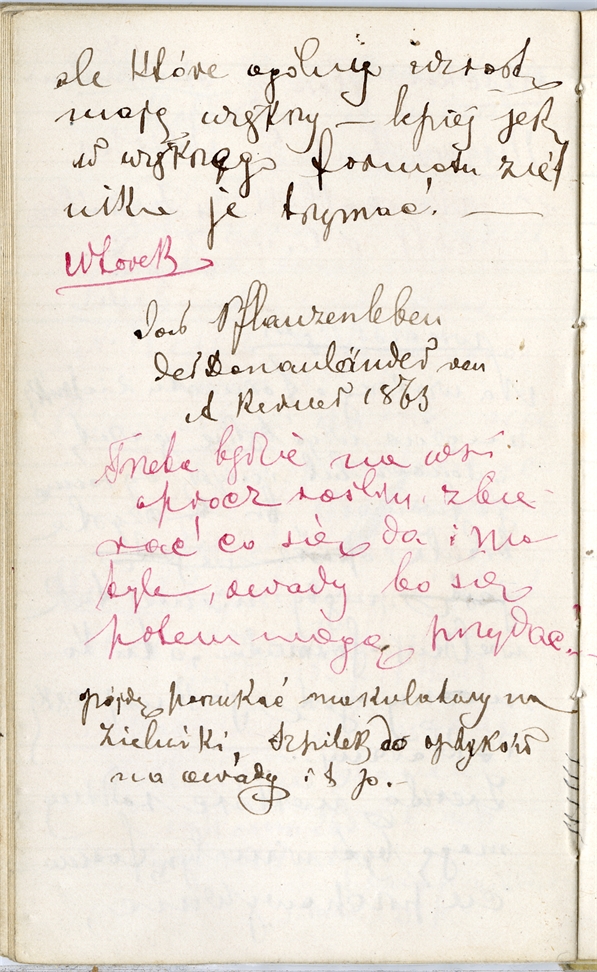 ale które ogólny wzrost
mają większy – lepiej jak
w większego formatu ziel
niku je trzymać. —
Wtorek
Das Pflanzenleben
der Donauländer von
A Kerner 1863
Trzeba będzie na wsi
oprócz roślin, zbie-
rać co się da i mo
tyle, owady bo się
potem mogą przydać.
pójdę poszukać makulatury na
Zielniki, Szpilek do optyków
na owady i t p.-